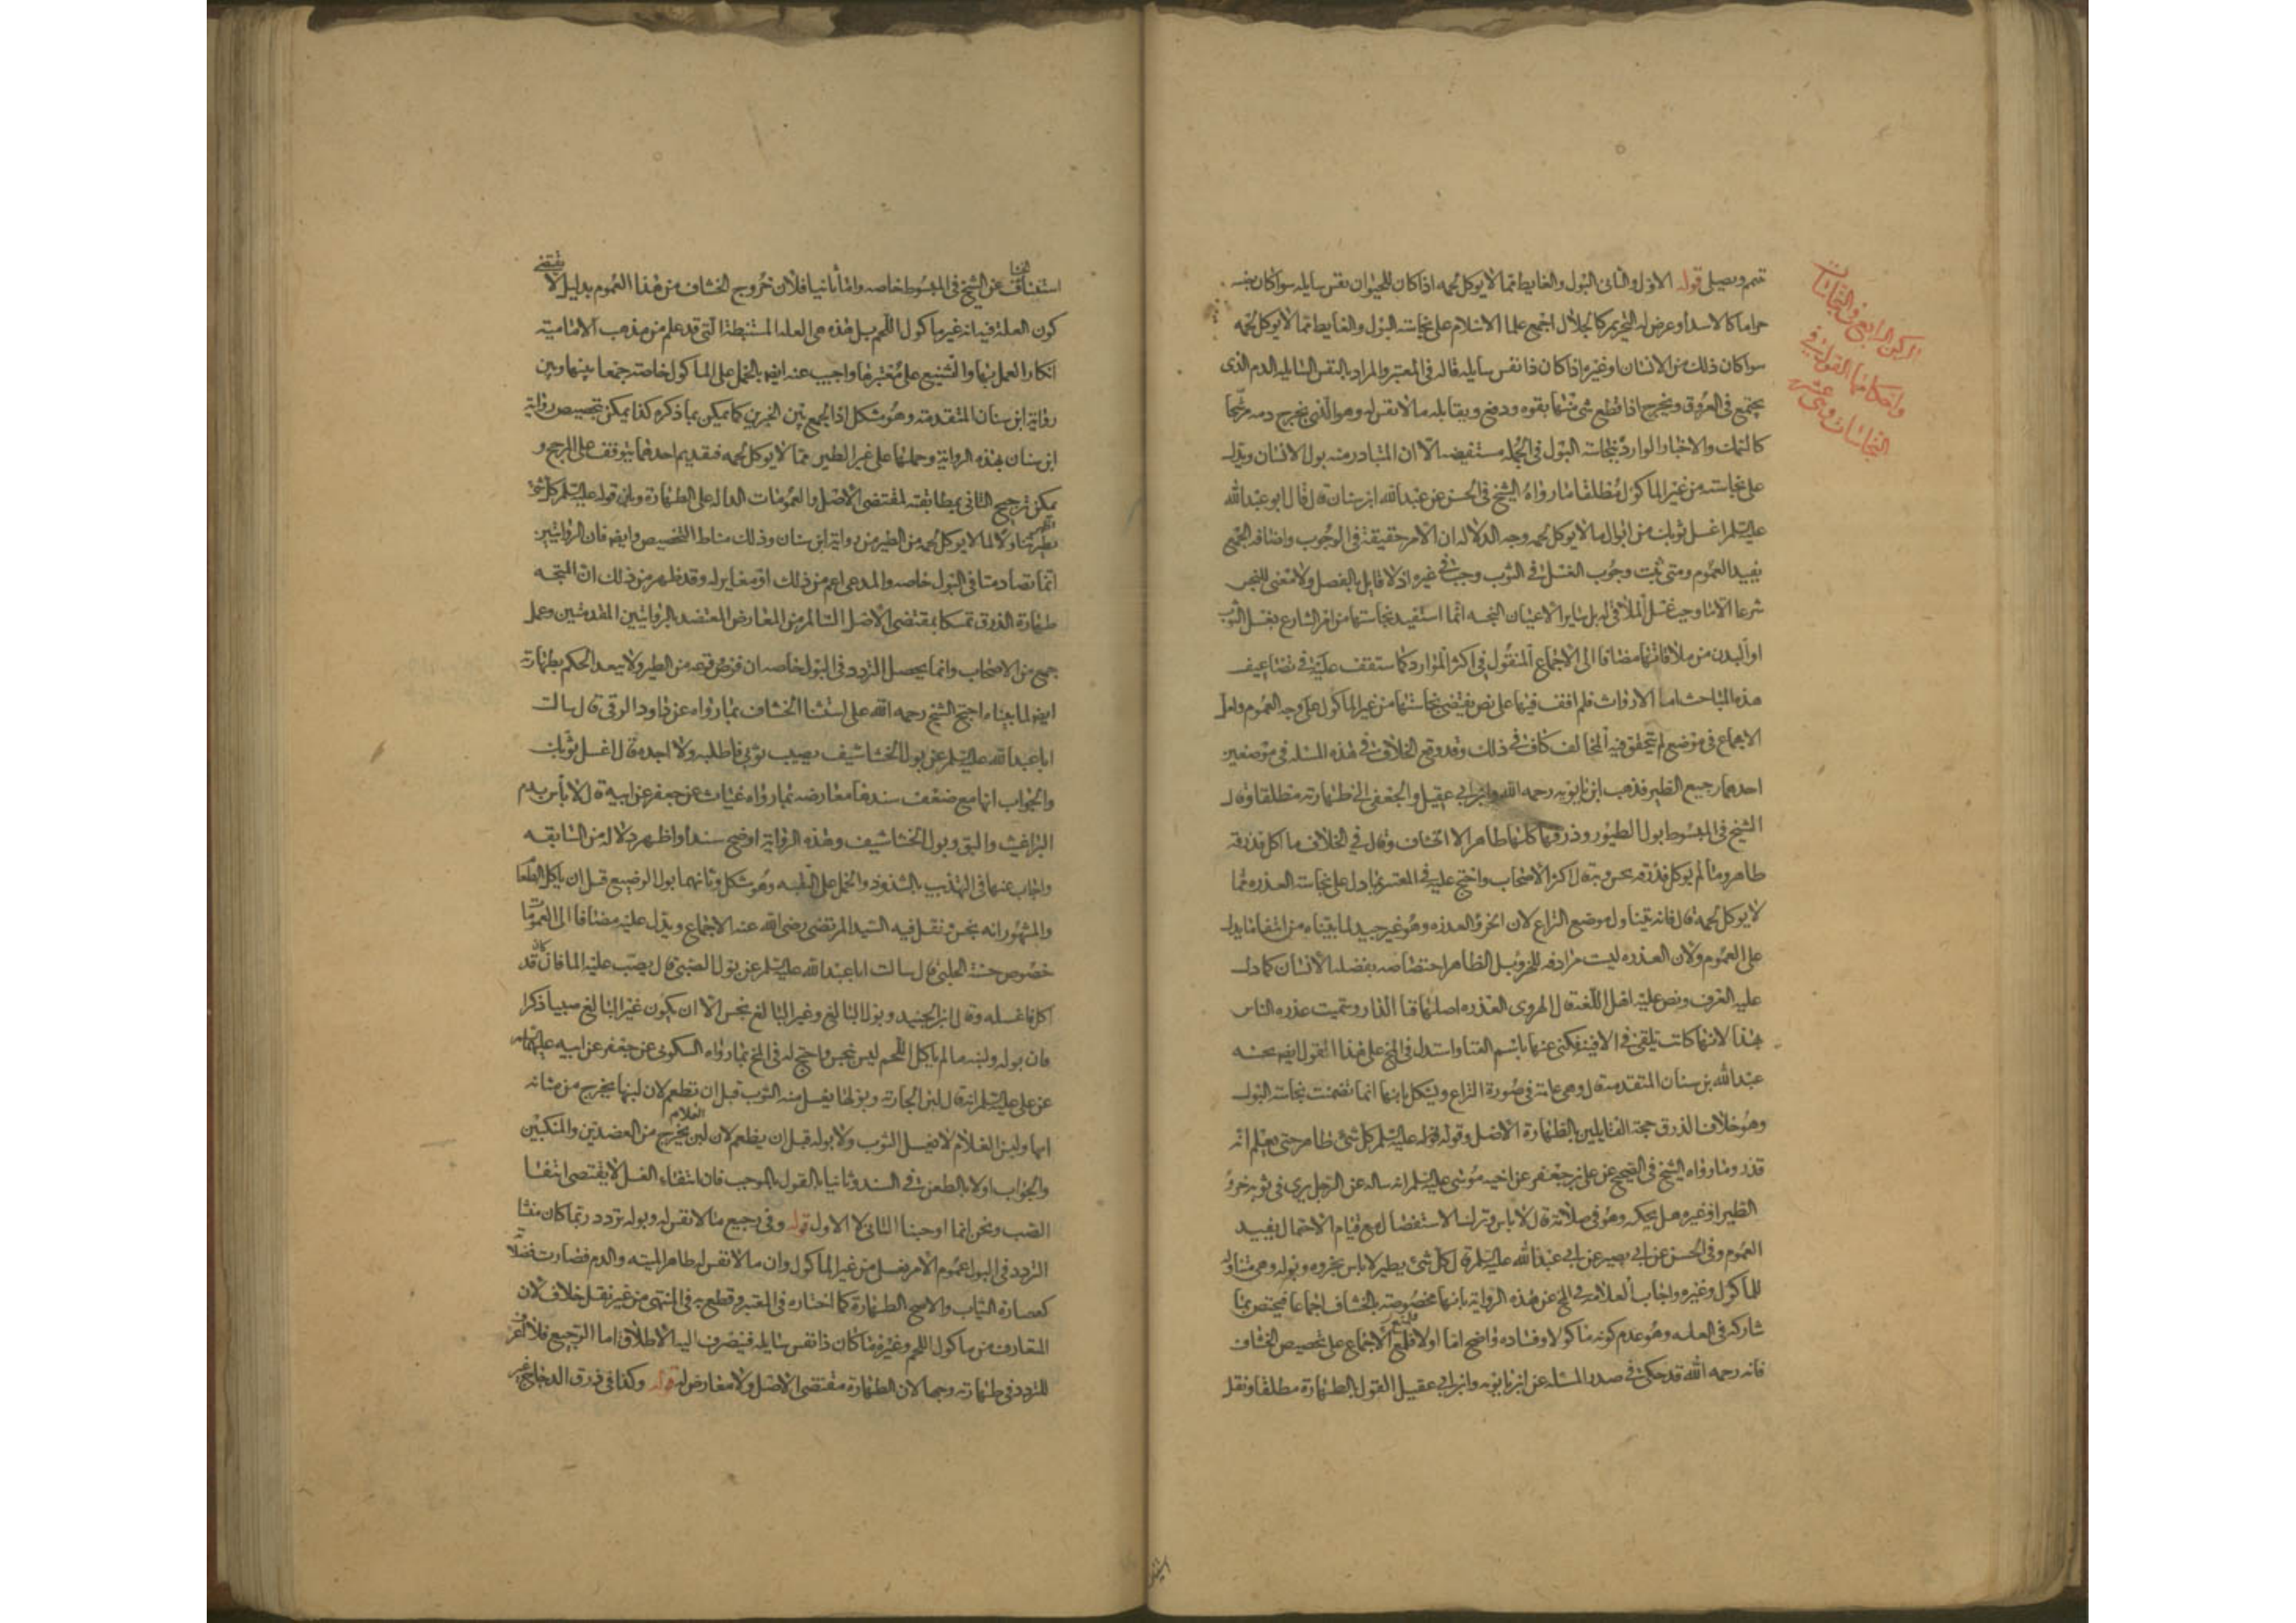 الركن الرابع في النجاسات
واحكامها القول في
النجاسات وهي عشرة
تمم ويصلى قوله الاول والثانى البول والغايط مما لا يوكل لحمه اذا كان للحيوان نفس سايله سوا كان جنسه
حراما كالاسد او عرض له التحريم كالجلال اجمع علما الاسلام على نجاسة البول والغايط مما لا يوكل لحمه
سوا كان ذلك من الانسان او غيره اذا كان ذا نفس سايله قاله فى المعتبر والمراد بالنفس السايله الدم الذى
يجتمع فى العروق ويخرج اذا قطع شى منها بقوه ودفع ويقابله ما لا نفس له وهو الذى يخرج دمه رشحا
كالسمك والاخبار الوارده بنجاسة البول فى الجمله مستفيضه الا ان المتبادر منه بول الانسان ويدل
على نجاسته من غير الماكول مطلقا ما رواه الشيخ فى الحسن عن عبد الله ابن سنان ق ل قال ابو عبد الله
عليه السلم اغسل ثوبك من ابوال ما لا يوكل لحمه وجه الدلاله ان الامر حقيقة فى الوجوب واضافه الجمع
يفيد العموم ومتى ثبت وجوب الغسل فى الثوب وجب فى غيره اذ لا قايل بالفصل ولا معنى للنجس
شرعا الا ما وجب غسل الملاقى له بل ساير الاعيان النجسه انما استفيد نجاستها من امر الشارع بغسل الثوب
او البدن من ملاقاتها مضافا الى الاجماع المنقول فى اكثر الموارد كما ستقف عليه فى تضاعيف
هذه المباحث اما الارواث فلم اقف فيها على نص يقتضى نجاستها من غير الماكول على وجه العموم ولعل
الاجماع فى موضع لم يتحقق فيه المخالف كاف فى ذلك وقد وقع الخلاف فى هذه المسله فى موضعين
احدهما رجيع الطير فذهب ابن بابويه رحمه الله وابن ابى عقيل والجعفى الى طهارته مطلقا وق ل
الشيخ فى المبسوط بول الطيور وذرقها كلها طاهر الا الخشاف وق ل فى الخلاف ما اكل فذرقه
طاهر وما لم يوكل فذرقه نجس وبه ق ل اكثر الاصحاب واحتج عليه فى المعتبر بما دل على نجاسة العذره مما
لا يوكل لحمه ق ل فانه يتناول موضع النزاع لان الخرؤ العذره وهو غير جيد لما بيناه من انتفا ما يدل
على العموم ولان العذره ليست مرادفه للخرو بل الظاهر اختصاصه بفضله الانسان كما دل
عليه العرف ونص عليه اهل اللغة ق ل الهروى العذره اصلها فنا الدار وسميت عذره الناس
بهذا لانها كانت تلقى فى الافنيه فكنى عنها باسم الفنا واستدل فى المخ على هذا القول ايض بحسنه
عبد الله بن سنان المتقدمة ق ل وهى عامة فى صورة النزاع ويشكل بانها انما تضمنت نجاسة البول
وهو خلاف الذرق حجة القايلين بالطهارة الاصل وقوله عليه السلم كل شى طاهر حتى يعلم انه
قذر وما رواه الشيخ فى الصحيح عن على بن جعفر عن اخيه موسى عليه السلم انه ساله عن الرجل يرى فى ثوبه خرؤ
الطير او غيره هل يحكه وهو فى صلاته ق ل لا باس وترك الاستفصال مع قيام الاحتمال يفيد
العموم وفى الحسن عن ابى بصير عن ابى عبد الله عليه السلم ق ل كل شى يطير لا باس بخروه وبوله وهى متناوله
للماكول وغيره واجاب العلامه فى المخ عن هذه الرواية بانها مخصوصه بالخشاف اجماعا فيختص بما
شاركه فى العله وهو عدم كونه ماكولا وفساده واضح اما اولا فلمنع الاجماع على تخصيص الخشاف
فانه رحمه الله قد حكى فى صدر المسله عن ابن بابويه وابن ابى عقيل القول بالطهارة مطلقا ونقل
استثناف عن الشيخ فى المبسوط خاصه واما ثانيا فلان خروج الخشاف من هذا العموم بدليل لا يقتضى
كون العلة فيه انه غير ماكول اللحم بل هذه هى العله المستنبطة التى قد علم من مذهب الامامية
انكار العمل بها والتشنيع على معتبرها واجيب عنه ايض بالحمل على الماكول خاصة جمعا بينها وبين
رواية ابن سنان المتقدمة وهو مشكل اذ الجمع بين الخبرين كما يمكن بما ذكره كذا يمكن تخصيص رواية
ابن سنان بهذه الرواية وحملها على غير الطير مما لا يوكل لحمه فتقديم احدهما يتوقف على المرجح و
يمكن ترجيح الثانى بمطابقته لمقتضى الاصل والعمومات الداله على الطهارة وبان قوله عليه السلم كل شى
يطير اظهر تناولا لما لا يوكل لحمه من الطير من رواية ابن سنان وذلك مناط التخصيص وايض فان الروايتين
انما تصادمتا فى البول خاصه والمدعى اعم من ذلك او مغاير له وقد ظهر من ذلك ان المتجه
طهارة الذرق تمسكا بمقتضى الاصل السالم من المعارض المعتضد بالروايتين المتقدمتين وعمل
جمع من الاصحاب وانما يحصل التردد فى البول خاصه ان فرض وقوعه من الطير ولا يبعد الحكم بطهارته
ايض لما بيناه احتج الشيخ رحمه الله على استثنا الخشاف بما رواه عن داود الرقى ق ل سالت
ابا عبد الله عليه السلم عن بول الخشاشيف يصيب ثوبى فاطلبه ولا اجده ق ل اغسل ثوبك
والجواب انها مع ضعف سندها معارضه بما رواه غياث عن جعفر عن ابيه ق ل لا باس بدم
البراغيث والبق وبول الخشاشيف وهذه الرواية اوضح سندا واظهر دلاله من السابقه
واجاب عنها فى التهذيب بالشذوذ والحمل على التقيه وهو مشكل وثانيهما بول الرضيع قبل ان ياكل الطعام
والمشهور انه نجس نقل فيه السيد المرتضى رضى الله عنه الاجماع ويدل عليه مضافا الى العمومات
خصوص حسنة الحلبى ق ل سالت ابا عبد الله عليه السلم عن بول الصبى ق ل يصب عليه الما فان كان قد
اكل فاغسله وق ل ابن الجنيد وبول البالغ وغير البالغ نجس الا ان يكون غير البالغ صبيا ذكرا
فان بوله ولبنه ما لم ياكل اللحم ليس بنجس واحتج له فى المخ بما رواه السكونى عن جعفر عن ابيه عليهما السلم
عن على عليه السلم انه ق ل لبن الجارية وبولها يغسل منه الثوب قبل ان تطعم لان لبنها يخرج من مثانه
امها ولبن الغلام لا يغسل الثوب ولا بوله قبل ان يطعم لان لبن الغلام يخرج من العضدين والمنكبين
والجواب اولا بالطعن فى السند وثانيا بالقول بالموجب فان انتفاء الغسل لا يقتضى انتفا
الصب ونحن انما اوجبنا الثانى لا الاول قوله وفى رجيع ما لا نفس له وبوله تردد ربما كان منشا
التردد فى البول عموم الامر بغسله من غير الماكول وان ما لا نفس له طاهر الميته والدم فصارت فضلاته
كعصارة النبات والاصح الطهارة كما اختاره فى المعتبر وقطع به فى المنتهى من غير نقل خلاف لان
المتعارف من ماكول اللحم وغيره ما كان ذا نفس سايله فينصرف اليه الاطلاق اما الرجيع فلا اعرف
للتردد فى طهارته وجها لان الطهارة مقتضى الاصل ولا معارض له قوله وكذا فى ذرق الدجاج غير